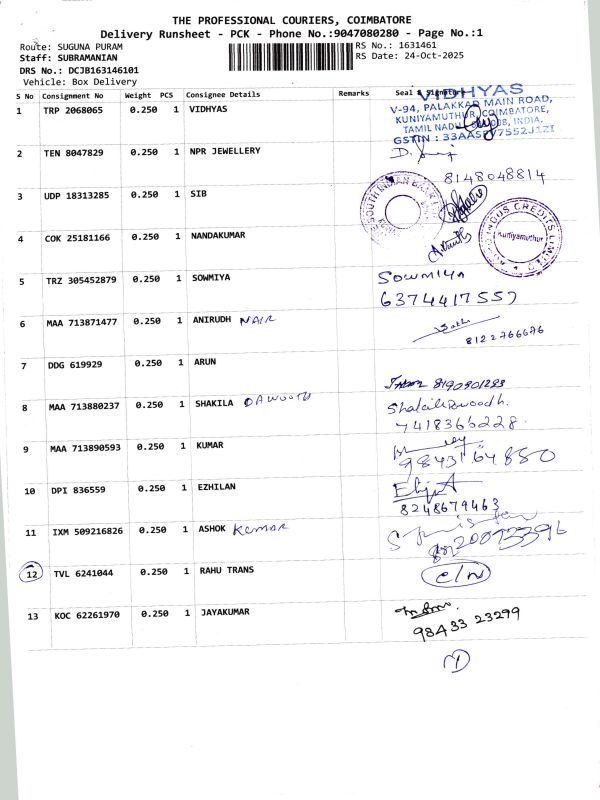 THE PROFESSIONAL COURIERS, COIMBATORE
Delivery Runsheet - PCK - Phone No.:9047080280 - Page No.:1
Route: SUGUNA PURAM RS No.: 1631461
Staff: SUBRAMANIAN RS Date: 24-Oct-2025
DRS No.: DCJB163146101
Vehicle: Box Delivery
S No Consignment No Weight PCS Consignee Details Remarks Seal & Signature
1 TRP 2068065 0.250 1 VIDHYAS
VIDHYAS
V-94, PALAKKAD MAIN ROAD,
KUNIYAMUTHUR, COIMBATORE,
TAMIL NADU, INDIA.
GSTIN :
2 TEN 8047829 0.250 1 NPR JEWELLERY
8148048814
3 UDP 18313285 0.250 1 SIB
SOUTH INDIAN BANK
4 COK 25181166 0.250 1 NANDAKUMAR
INDUS CREDITS LIMITED
Kuniyamuthur
5 TRZ 305452879 0.250 1 SOWMIYA
SOWMIYA
6374417557
6 MAA 713871477 0.250 1 ANIRUDH NAIR
8122766676
7 DDG 619929 0.250 1 ARUN
8190901293
8 MAA 713880237 0.250 1 SHAKILA DAWOOTH
7418366228
9 MAA 713890593 0.250 1 KUMAR
9843164850
10 DPI 836559 0.250 1 EZHILAN
8248679463
11 IXM 509216826 0.250 1 ASHOK KUMAR
12 TVL 6241044 0.250 1 RAHU TRANS
13 KOC 62261970 0.250 1 JAYAKUMAR
98433 23299
1